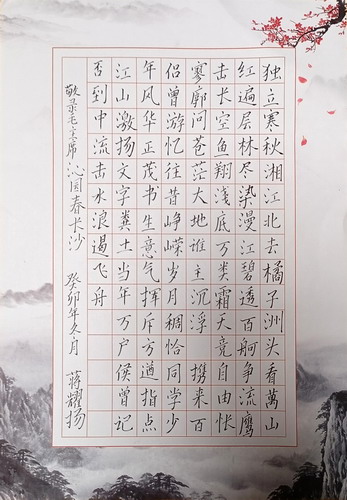 独立寒秋湘江北去橘子洲头看萬山
红遍层林尽染漫江碧透百舸争流鹰
击长空鱼翔浅底万类霜天竞自由怅
寥廓问苍茫大地谁主沉浮 携来百
侣曾游忆往昔峥嵘岁月稠恰同学少
年风华正茂书生意气挥斥方遒指点
江山激扬文字粪土当年万户侯曾记
否到中流击水浪遏飞舟
敬录毛主席沁园春长沙 癸卯年九月 蒋耀扬